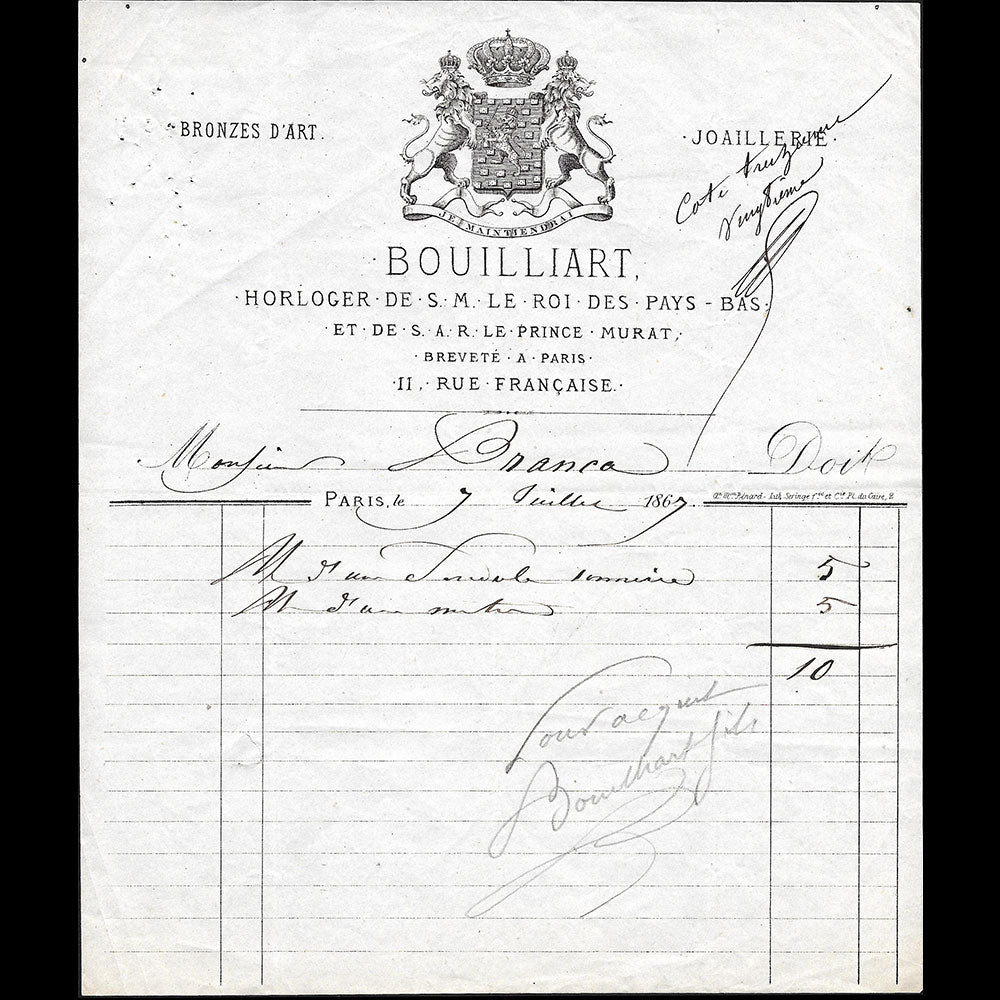 BRONZES D'ART.
JOAILLERIE.
JE MAINTIENDRAI
Cote treizieme
Vingtième
BOUILLIART,
HORLOGER · DE · S. M. LE · ROI · DES · PAYS - BAS.
ET · DE · S. A. R. LE · PRINCE · MURAT,
BREVETÉ · A · PARIS ·
11, · RUE · FRANÇAISE ·
Monsieur Branca Doit
PARIS, le 7 Juillet 1867.
Cie. Pl. du Caire, 2
d'une Pendule sonnerie 5
d'une montre 5
10
Pour acquit
Bouilliart fils